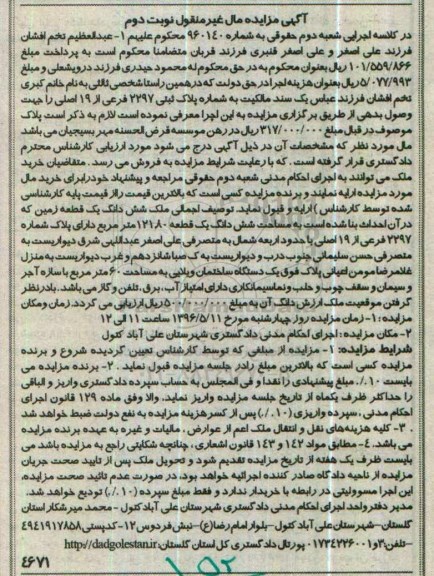 آگهی مزایده مال غیرمنقول نوبت دوم
در کلاسه اجرایی شعبه دوم حقوقی به شماره ۹۶۰۱۴۰ محکوم علیهم ۱-عبدالعظیم تخم افشان
فرزند علی اصغر و علی اصغر قنبری فرزند قربان متضامنا محکوم است به پرداخت مبلغ
۱۰۱/۵۵۹/۸۶۶ ریال بعنوان محکوم به در حق محکوم له محمود حیدری فرزند درویشعلی و مبلغ
۵/۰۷۷/۹۹۳ ریال بعنوان هزینه اجرا در حق دولت که در همین راستا شخصی ثالثی به نام خانم کبری
تخم افشان فرزند عباس یک سند مالکیت به شماره پلاک ثبتی ۲۲۹۷ فرعی از ۱۹ اصلی را جهت
وصول بدهی از طریق برگزاری مزایده به این اجرا معرفی نموده است لازم به ذکر است پلاک
موصوف در قبال مبلغ ۳۱۷/۰۰۰/۰۰۰ ریال در رهن موسسه قرض الحسنه مهر بسیجیان می باشد
مال مورد نظر که مشخصات آن در ذیل آگهی درج می شود مورد ارزیابی کارشناس محترم
دادگستری قرار گرفته است. که با رعایت شرایط مزایده به فروش می رسد. متقاضیان خرید
ملک می توانند به اجرای احکام مدنی شعبه دوم حقوقی مراجعه و پیشنهاد خود را برای خرید مال
مورد مزایده ارایه نمایند و برنده مزایده کسی است که بالاترین قیمت را (از قیمت پایه کارشناسی
شده توسط کارشناس) ارایه و قبول نماید. توصیف اجمالی ملک شش دانگ یک قطعه زمین که
در آن احداث بنا شده است به مساحت شش دانگ یک قطعه ۱۲۱.۸۰ متر مربع دارای پلاک شماره
۲۲۹۷ فرعی از ۱۹ اصلی با حدود اربعه شمال به متصرفی علی اصغر عبداللهی شرق دیواریست به
متصرفی حسن سلیمانی جنوب درب و دیواریست به ک صبا شانزدهم و غرب دیواریست به منزل
غلامرضا مومن اعیانی پلاک فوق یک دستگاه ساختمان ویلایی به مساحت ۶۰ متر مربع با سازه آجر
و سیمان و سقف چوب و حلب و نماسیمانکاری دارای امتیاز آب، برق. تلفن و گاز می باشد. با در نظر
گرفتن موقعیت ملک ارزش دانگ آن به مبلغ ریال ارزیابی می گردد. زمان و مکان
مزایده: ۱-زمان مزایده روز چهارشنبه مورخ ۱۳۹۶/۵/۱۱ ساعت ۱۱ الی ۱۲
۲-مکان مزایده: اجرای احکام مدنی دادگستری شهرستان علی آباد کتول
شرایط مزایده: ۱-مزایده از مبلغی که توسط کارشناس تعیین گردیده شروع و برنده
مزایده کسی است که بالاترین مبلغ را در جلسه مزایده قبول نماید. ۲-برنده مزایده می
بایست ۱۰٪. مبلغ پیشنهادی را نقدا و فی المجلس به حساب سپرده دادگستری واریز و الباقی
را حداکثر ظرف یکماه از تاریخ جلسه مزایده واریز نماید. والا وفق ماده ۱۲۹ قانون اجرای
احکام مدنی، سپرده واریزی (۱۰٪) پس از کسر هزینه مزایده به نفع دولت ضبط خواهد شد
.۳- کلیه هزینه های نقل و انتقال ملک اعم از عوارض، مالیات و غیره به عهده برنده مزایده
می باشد. ۴-مطابق مواد ۱۴۲ و ۱۴۳ قانون اشعاری، چنانچه شکایتی راجع به مزایده باشد می
بایست ظرف یک هفته از تاریخ مزایده تقدیم شود و تحویل ملک پس از تایید صحت جریان
مزایده از ناحیه دادگاه صادر کننده اجرائیه خواهد بود، در صورت عدم تائید صحت مزایده،
این اجرا مسوولیتی در رابطه با خریدار ندارد و فقط مبلغ سپرده (۱۰٪) تودیع خواهد شد.
مدیر دفتر واحد اجرای احکام مدنی دادگستری شهرستان علی آباد کتول - محمد میرشکار استان
گلستان-شهرستان علی آباد کتول-بلوار امام رضا(ع)-نبش فردوس ۱۲-کدپستی ۴۹۴۱۹۱۷۸۵۸
-تلفن: ۳و۰۱۷۳۴۲۲۶۰۰۱ پورتال دادگستری کل استان گلستان: http://dadgolestan.ir
۴۶۷۱
۱۵۲